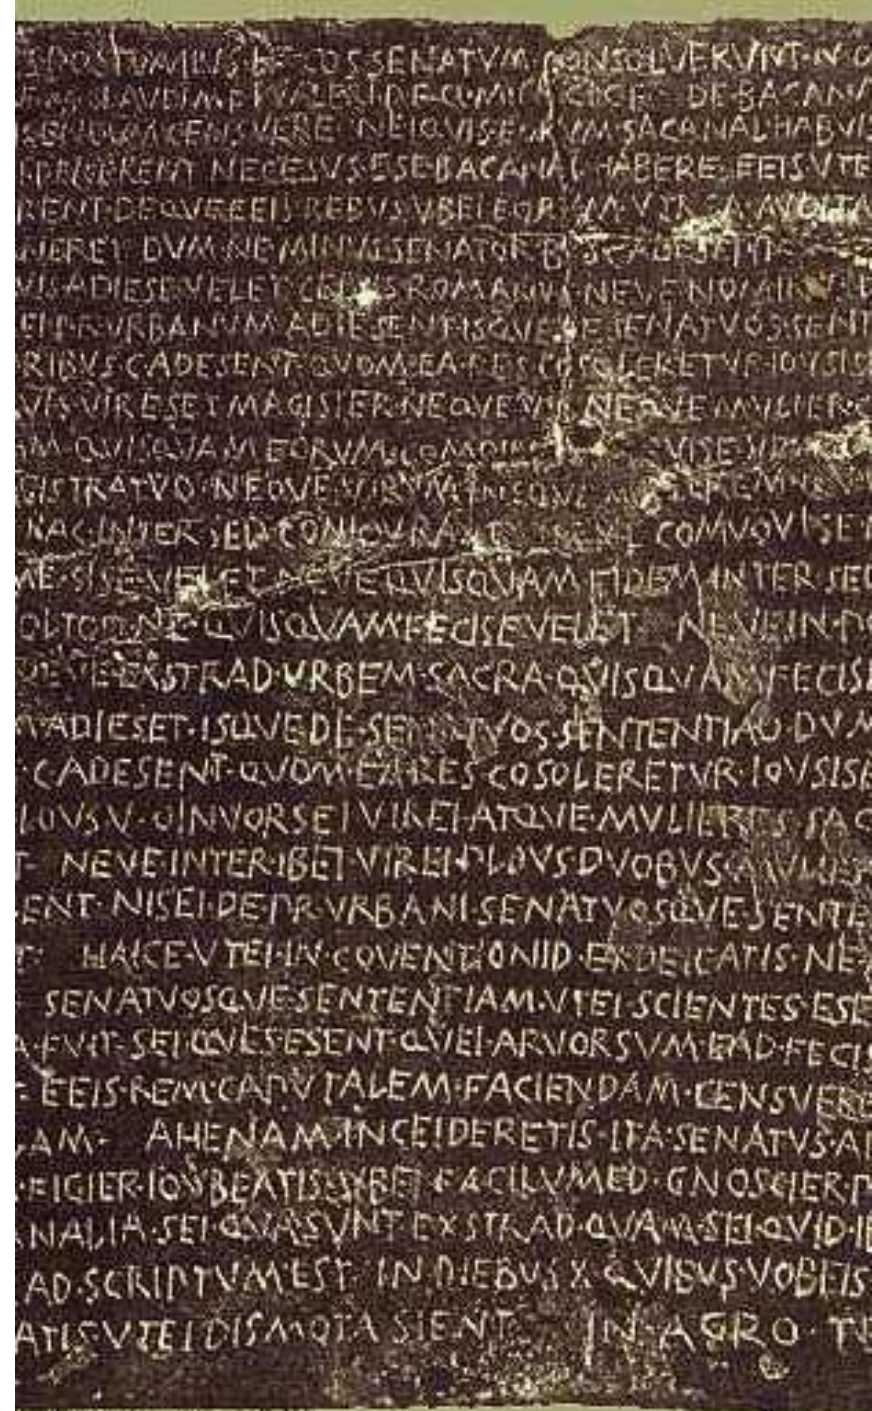 POSTVMIVS COS SENATVM CONSOLVERVNT·N·O
CLAVDI M F VALERI DE BACANA
CENSVERE NEIQVIS EORVM SACANAL HABVIS
NECESVS ESE BACANAL HABERE EEIS VTE
RENT·DEQVE EEIS REBVS VBEI EORVM VTR A AVDITA
NERET DVM NE MINVS SENATORBVS C ADESENT
VIS ADIESE VELET CEIVIS ROMANVS NEVE NOMIN
EI PR VRBANVM ADIESENT ISQVE DE SENATVOS SENT
RIBVS C ADESENT·QVOM EA RES COSOLERETVR IOVSISE
VIS VIR ESET MAGISTER NEQVE VIR NEQVE MVLIER·
M QVISQVAM EORVM COMOINE
GISTRATVO·NEQVE VIRVM NEQVE
HAC INTER SED CONIOVRA COMVOVISE
SE VELET NEVE QVISQVAM FIDEM INTER SED
OLTOD NE QVISQVAM FECISE VELET NEVE IN·PO
NEVE EXSTRAD·VRBEM·SACRA·QVISQVAM FECISE
ADIESET·ISQVE DE·SENATVOS·SENTENTIAD·DVM
C ADESENT·QVOM·EA·RES COSOLERETVR·IOVSISE
PLOVS V·OINVORSEI VIREI·ATQVE·MVLIERES SAC
NEVE·INTER·IBEI VIREI·PLOVS·DVOBVS MVLIER
ENT·NISEI·DE·PR·VRBANI·SENATVOSQVE SENTE
HAICE·VTEI·IN·COVENTIONID·EXDEICATIS·NE
SENATVOSQVE SENTENTIAM·VTEI SCIENTES·ESE
A·FVIT·SEI·QVES·ESENT·QVEI·ARVORSVM·EAD·FECIS
EEIS·REM·CAPVTALEM·FACIENDAM·CENSVERE
AM· AHENAM·INCEIDERETIS·ITA·SENATVS·AI
FIGIER·IOVBEATIS·VBEI FACILVMED·GNOSCIER·P
ANALIA·SEI·QVA SVNT EXSTRAD·QVAM·SEI·QVID·IB
AD·SCRIPTVM EST IN·DIEBVS X QVIBVS·VOBEIS
ATIS VTEI DISMOTA SIENT IN·AGRO·TE